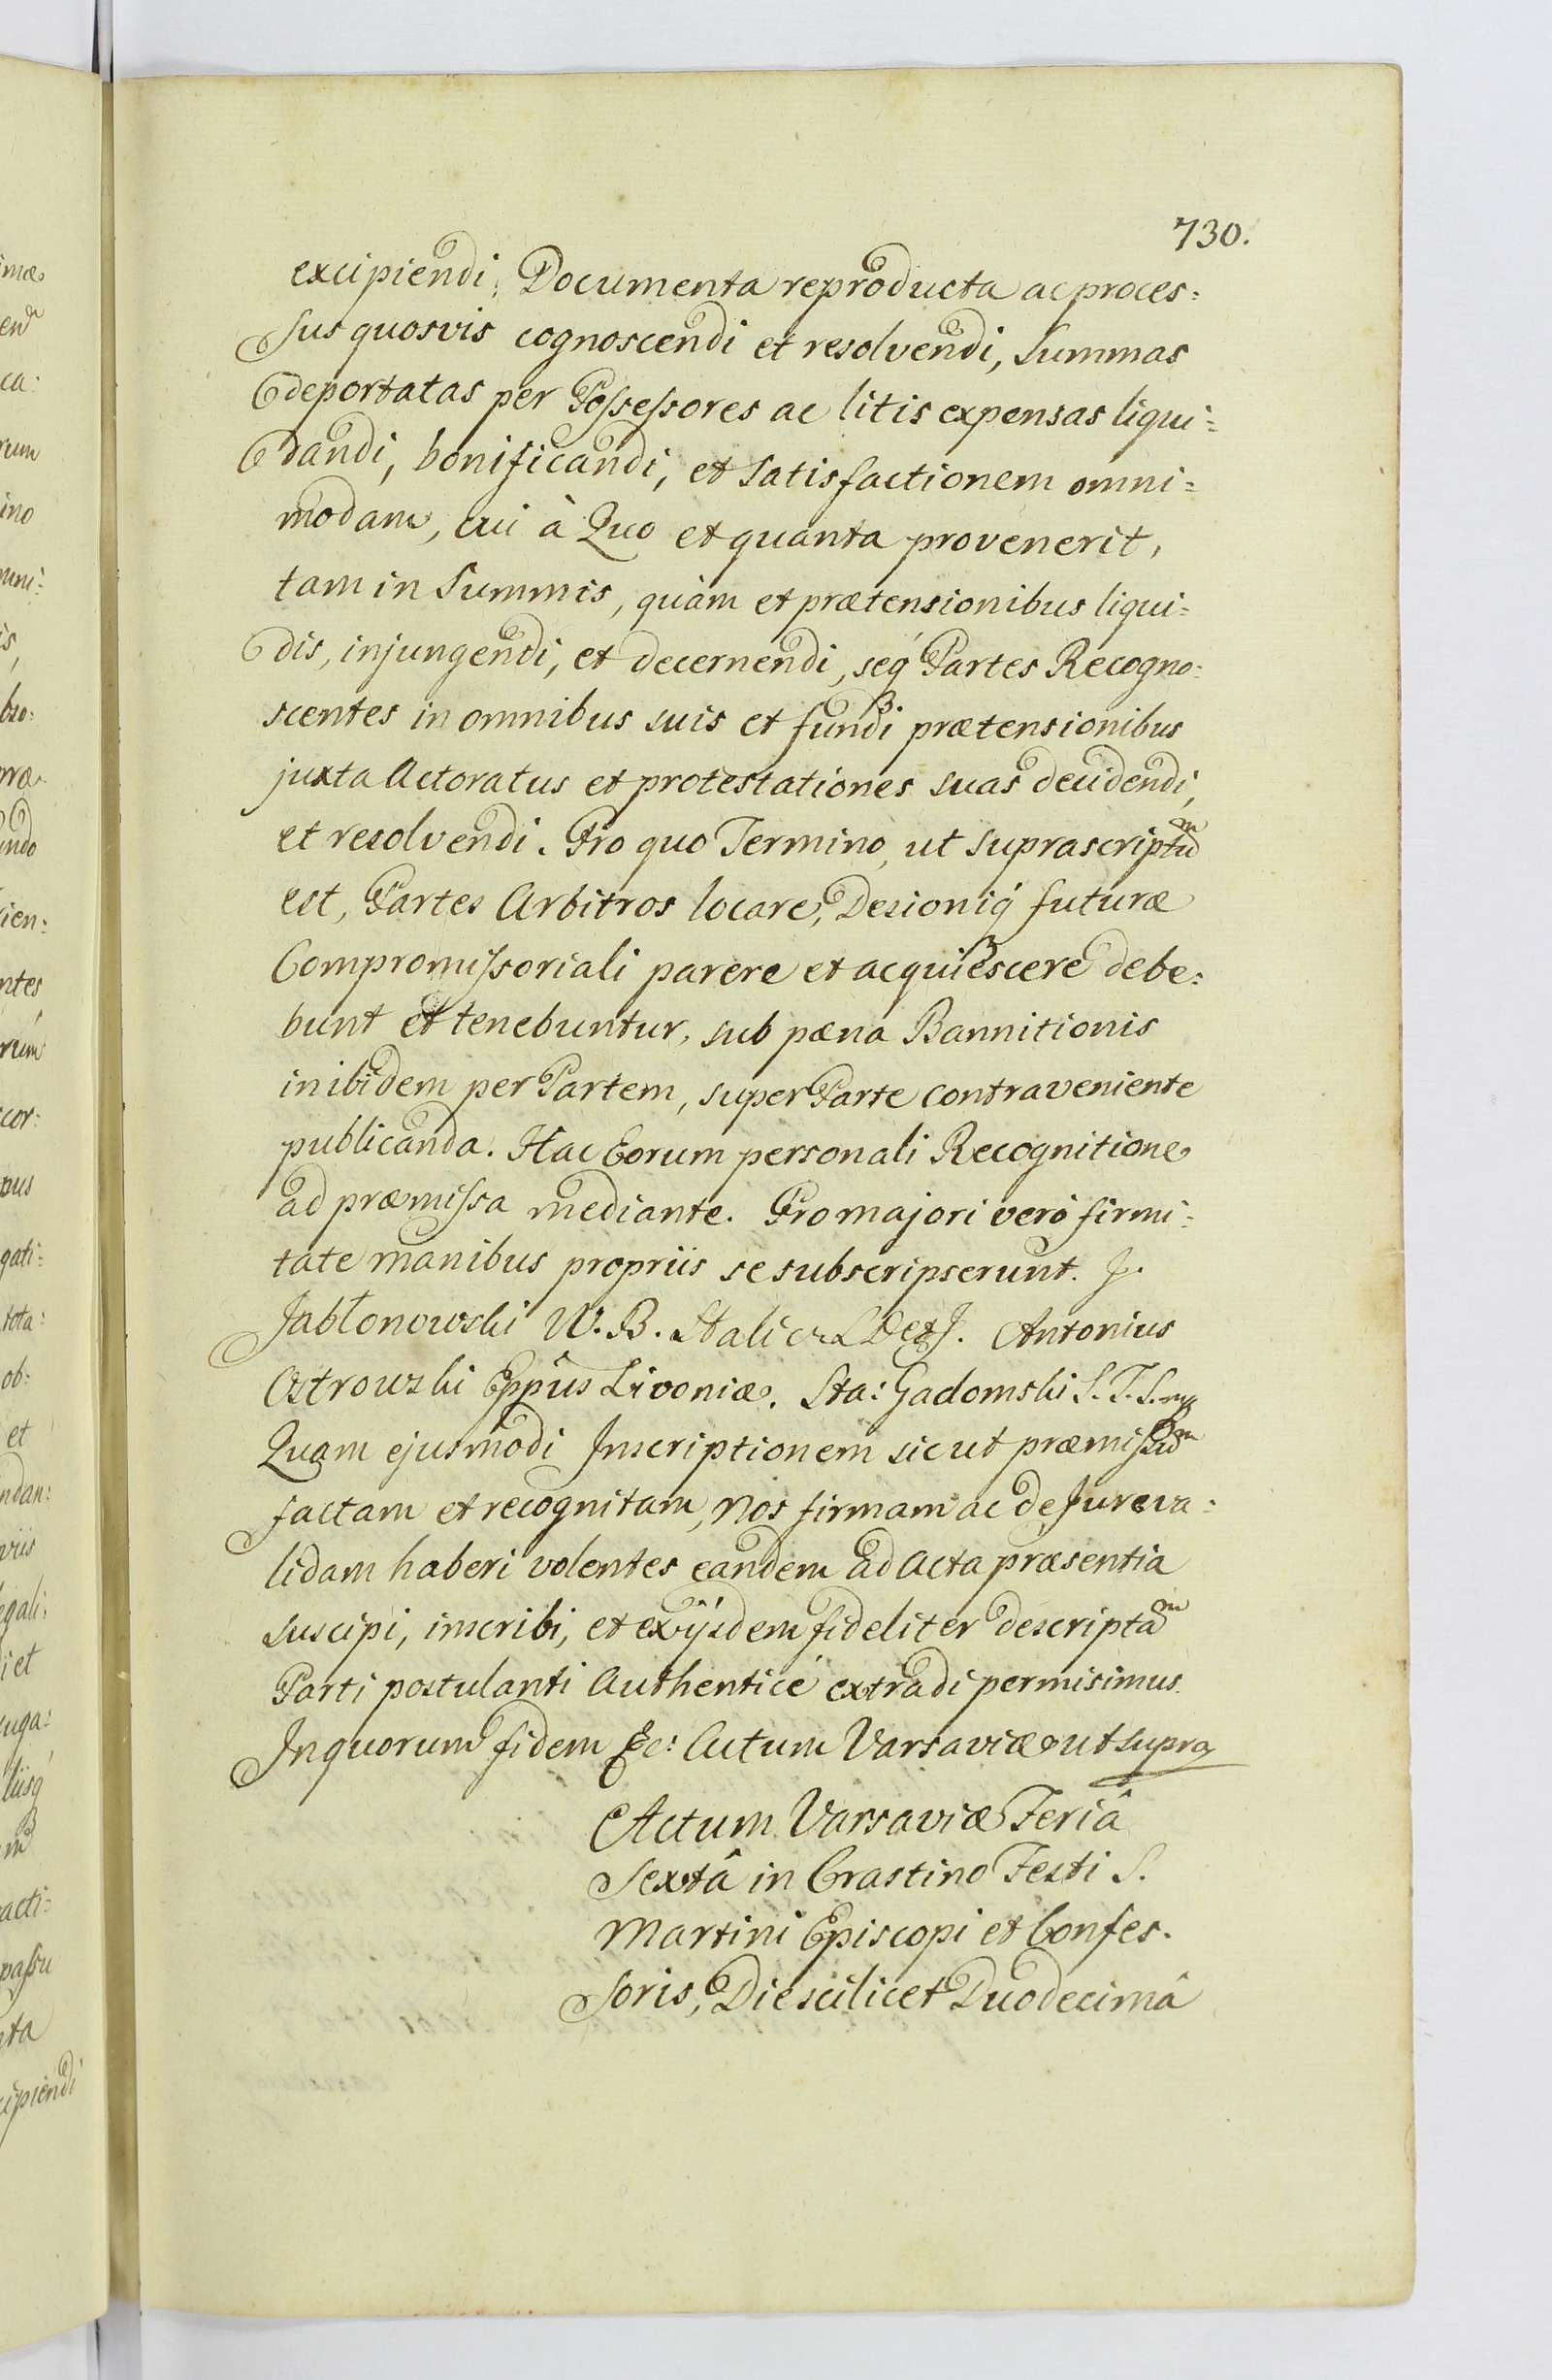 730.
excipiendi, Documenta reproducta ac proces:
sus quosvis cognoscendi et resolvendi, Summas
deportatas per Possessores ac litis expensas liqui:
dandi, bonificandi, et Satisfactionem omni:
modam, cui à Quo et quanta provenerit,
tam in Summis, quàm et prætensionibus liqui:
dis, injungendi, et decernendi, seq́ Partes Recogno:
scentes in omnibus suis et fundi prætensionibus
juxta Actoratus et protestationes suas decidendi,
et resolvendi. Pro quo Termino, ut suprascriptũ
est, Partes Arbitros locare, Desioniq́ futuræ
Compromissoriali parere et acquiescere debe:
bunt et tenebuntur, sub pæna Bannitionis
inibidem per Partem, super Parte contraveniente
publicanda. Hac Eorum personali Recognitione
ad præmissa mediante. Pro majori verò firmi:
tate manibus propriis se subscripserunt. J.
Jabłonowski W. B. Halic Antonius
Ostrowski Eppûs Livoniæ. Sta: Gadomski S. T. S. mp
Quam ejusmodi Inscriptionem sicut præmissũ
factam et recognitam, Nos firmam ac de Jure va:
lidam haberi volentes eandem ad Acta præsentia
suscipi, inscribi, et ex ijsdem fideliter descriptã
Parti postulanti Authenticè extradi permisimus.
In quorum fidem &c: Actum Varsaviæ ut supra
Actum Varsaviæ Feriâ
Sextâ in Crastino Festi S.
Martini Episcopi et Confes.
soris, Die scilicet Duodecimâ